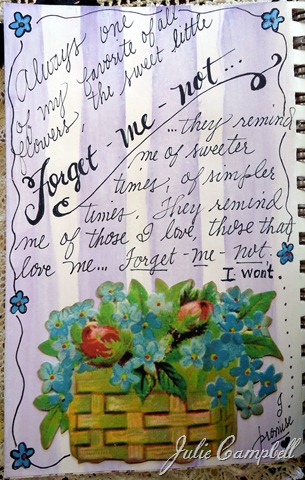 Always one
of my favorite of all
flowers, the sweet little
Forget-me-not...
...they remind
me of sweeter
times, of simpler
times. They remind
me of those I love, those that
love me... Forget-me-not.
I wont.
I
promise
Julie Campbell